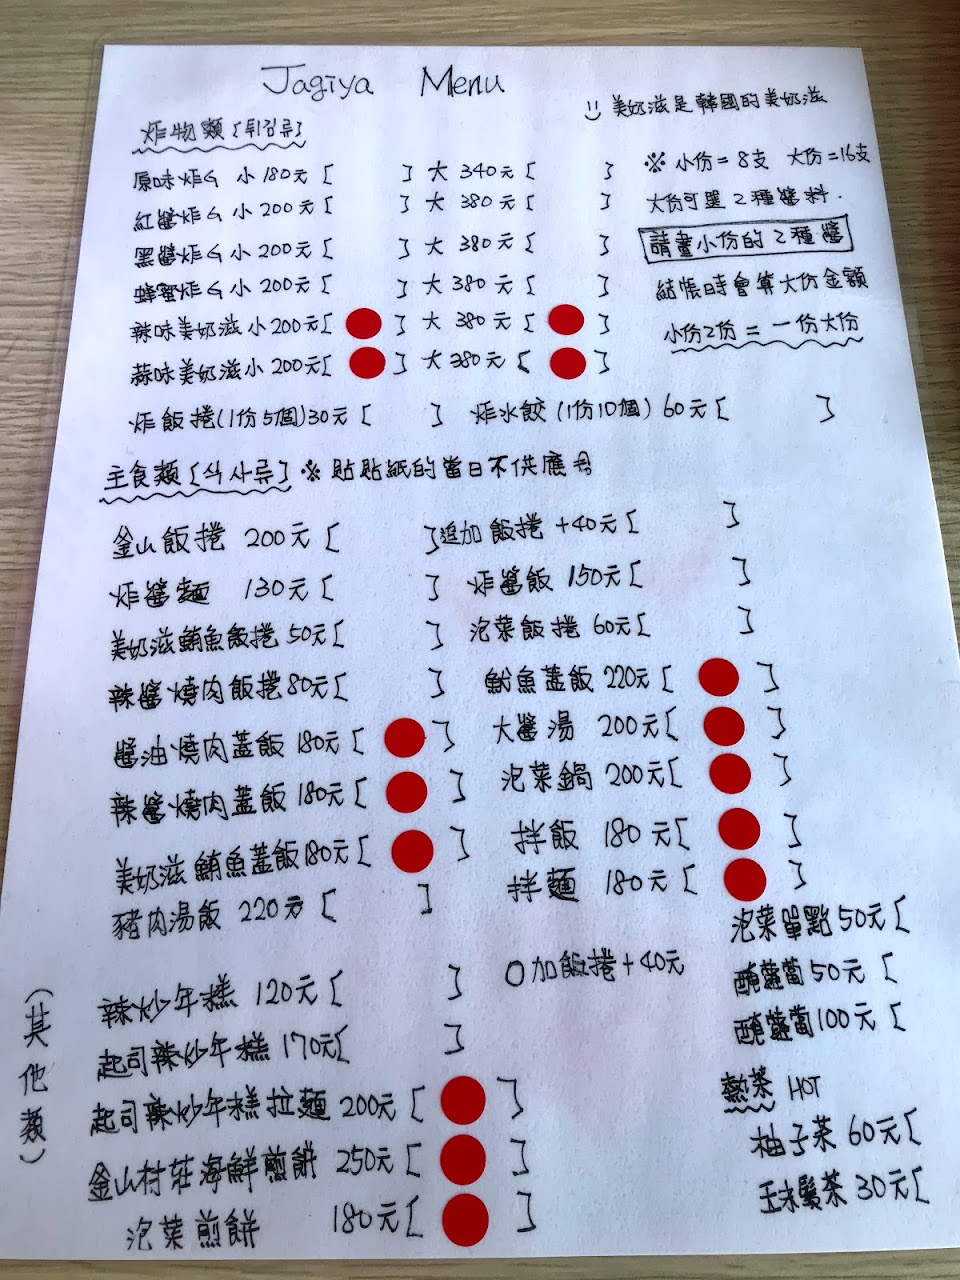 Jagiya Menu
美奶滋是韓國的美奶滋
炸物類[튀김류]
※ 小份=8支 大份=16支
原味炸G 小180元[ ] 大 340元[ ]
大份可選2種醬料.
紅醬炸G 小200元[ ] 大 380元[ ]
請畫小份的2種醬
黑醬炸G 小200元[ ] 大 380元[ ]
結帳時會算大份金額
蜂蜜炸G 小200元[ ] 大 380元[ ]
小份2份=一份大份
辣味美奶滋小200元[ ] 大 380元[ ]
蒜味美奶滋小200元[ ] 大380元[ ]
炸飯捲(1份5個)30元[ ] 炸水餃(1份10個)60元[ ]
主食類[식사류] ※貼貼紙的當日不供應
釜山飯捲 200元[ ] 追加飯捲+40元[ ]
炸醬麵 130元[ ] 炸醬飯 150元[ ]
美奶滋鮪魚飯捲50元[ ] 泡菜飯捲 60元[ ]
辣醬燒肉飯捲80元[ ] 魷魚蓋飯220元[ ]
醬油燒肉蓋飯180元[ ] 大醬湯 200元[ ]
辣醬燒肉蓋飯180元[ ] 泡菜鍋 200元[ ]
美奶滋鮪魚蓋飯180元[ ] 拌飯 180元[ ]
豬肉湯飯 220元[ ] 拌麵 180元[ ]
泡菜單點50元[
(其他類)
辣炒年糕 120元[ ] 加飯捲+40元
醃蘿蔔50元[
起司辣炒年糕170元[ ]
醃蘿蔔100元[
起司辣炒年糕拉麵200元[ ]
熱茶 HOT
釜山村莊海鮮煎餅250元[ ]
柚子茶60元[
泡菜煎餅 180元[ ]
玉米鬚茶30元[